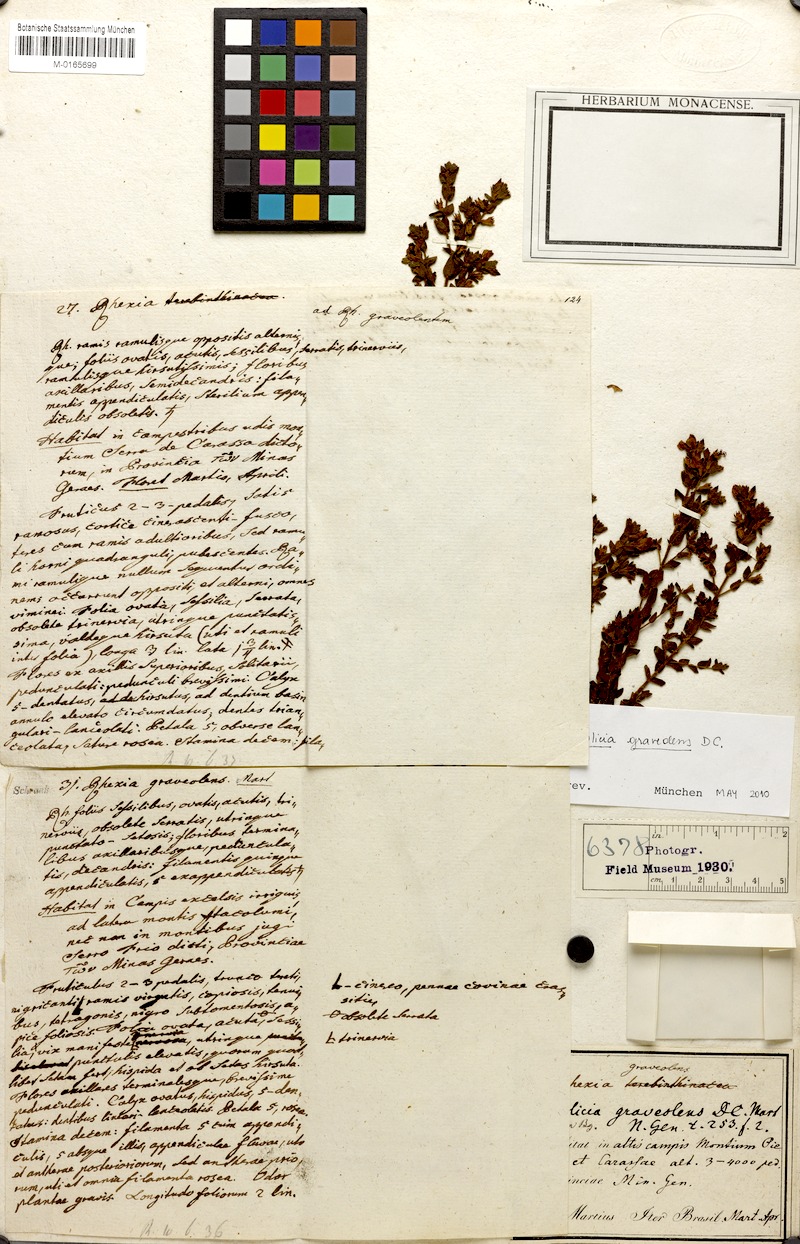 Botanische Staatssammlung München
M-0165699
HERBARIUM MONACENSE.
124
27. Rhexia terebinthinacea.
ad Rh. graveolentem
Rh. ramis ramulisque oppositis alternis
que; foliis ovatis, acutis, sessilibus, serratis, trinerviis,
ramulisque hirsutissimis; floribus
axillaribus, semidecandris: fila-
mentis appendiculatis, sterilium appen-
diculis obsoletis. ♄
Habitat in campestribus udis mon-
tium Serra de Carassa dicto-
rum, in Provincia τῶν Minas
Geraes. Floret Martio, Aprili.
Fruticus 2-3-pedalis, satis
ramosus, cortice cinerascenti-fusco,
teres cum ramis adultioribus, sed ramu-
li horni quadranguli, pubescentes. Ra-
mi ramulique nullum sequuntur ordi-
nem: occurrunt oppositi et alterni, omnes
viminei. Folia ovata, sessilia, serrata,
obsolete trinervia, utrinque punctatis-
sima, valdeque hirsuta (uti et ramuli
inter folia), longa 3 lin. lata
Flores ex axillis superioribus, solitarii,
pedunculati: pedunculi brevissimi. Calyx
5-dentatus, hirsutus, ad dentium basin
annulo elevato circumdatus, dentes trian-
gulari-lanceolati. Petala 5, obverse lan-
ceolata, sature rosea. Stamina decem: fila-
31. Rhexia graveolens. Mart
Rh. foliis sessilibus, ovatis, acutis, tri-
nerviis, obsolete serratis, utrinque
punctato-setosis; floribus termina-
libus axillaribusque, peduncula-
tis, decandris: filamentis quinque
appendiculatis, 5 exappendiculatis ♄
Habitat in Campis excelsis irriguis,
ad latera montis Itacolumi,
nec non in montibus jugi
Serro Frio dicti, Provinciae
τῶν Minas Geraes.
Fruticulus 2-3 pedalis, trunco tereti,
nigricanti, ramis virgatis, copiosis, tenui-
bus, tetragonis, nigro subtomentosis, a-
pice foliosis. Folia ovata, acuta, sessi-
lia, vix manifeste utrinque
punctulis elevatis, quorum quod-
libet setam fert, hispida et ob setas hirsuta.
Flores axillares terminalesque, brevissime
pedunculati. Calyx ovatus, hispidus, 5-den-
tatus: dentibus lineari-lanceolatis. Petala 5, rosea.
Stamina decem: filamenta 5 cum appendi-
culis, 5 absque illis, appendiculae flavae, uti
et antherae posteriorum, sed antherae prio-
rum, uti et omnia filamenta rosea. Odor
plantae gravis. Longitudo foliorum 2 lin.
cinereo, pennae corvinae cras-
sitie,
obsolete serrata
trinervia
licia graveolens DC.
rev.
München MAY 2010
6378
Photogr.
Field Museum 1930.
in 1 2
cm 1 2 3 4 5
graveolens
hexia terebinthinacea
licia graveolens DC. Mart
N. Gen. t. 253. f. 2.
itat in altis campis Montium
et Carassae alt. 3-4000 ped.
inciae Min. Gen.
Martius Iter Brasil. Mart. Apr.